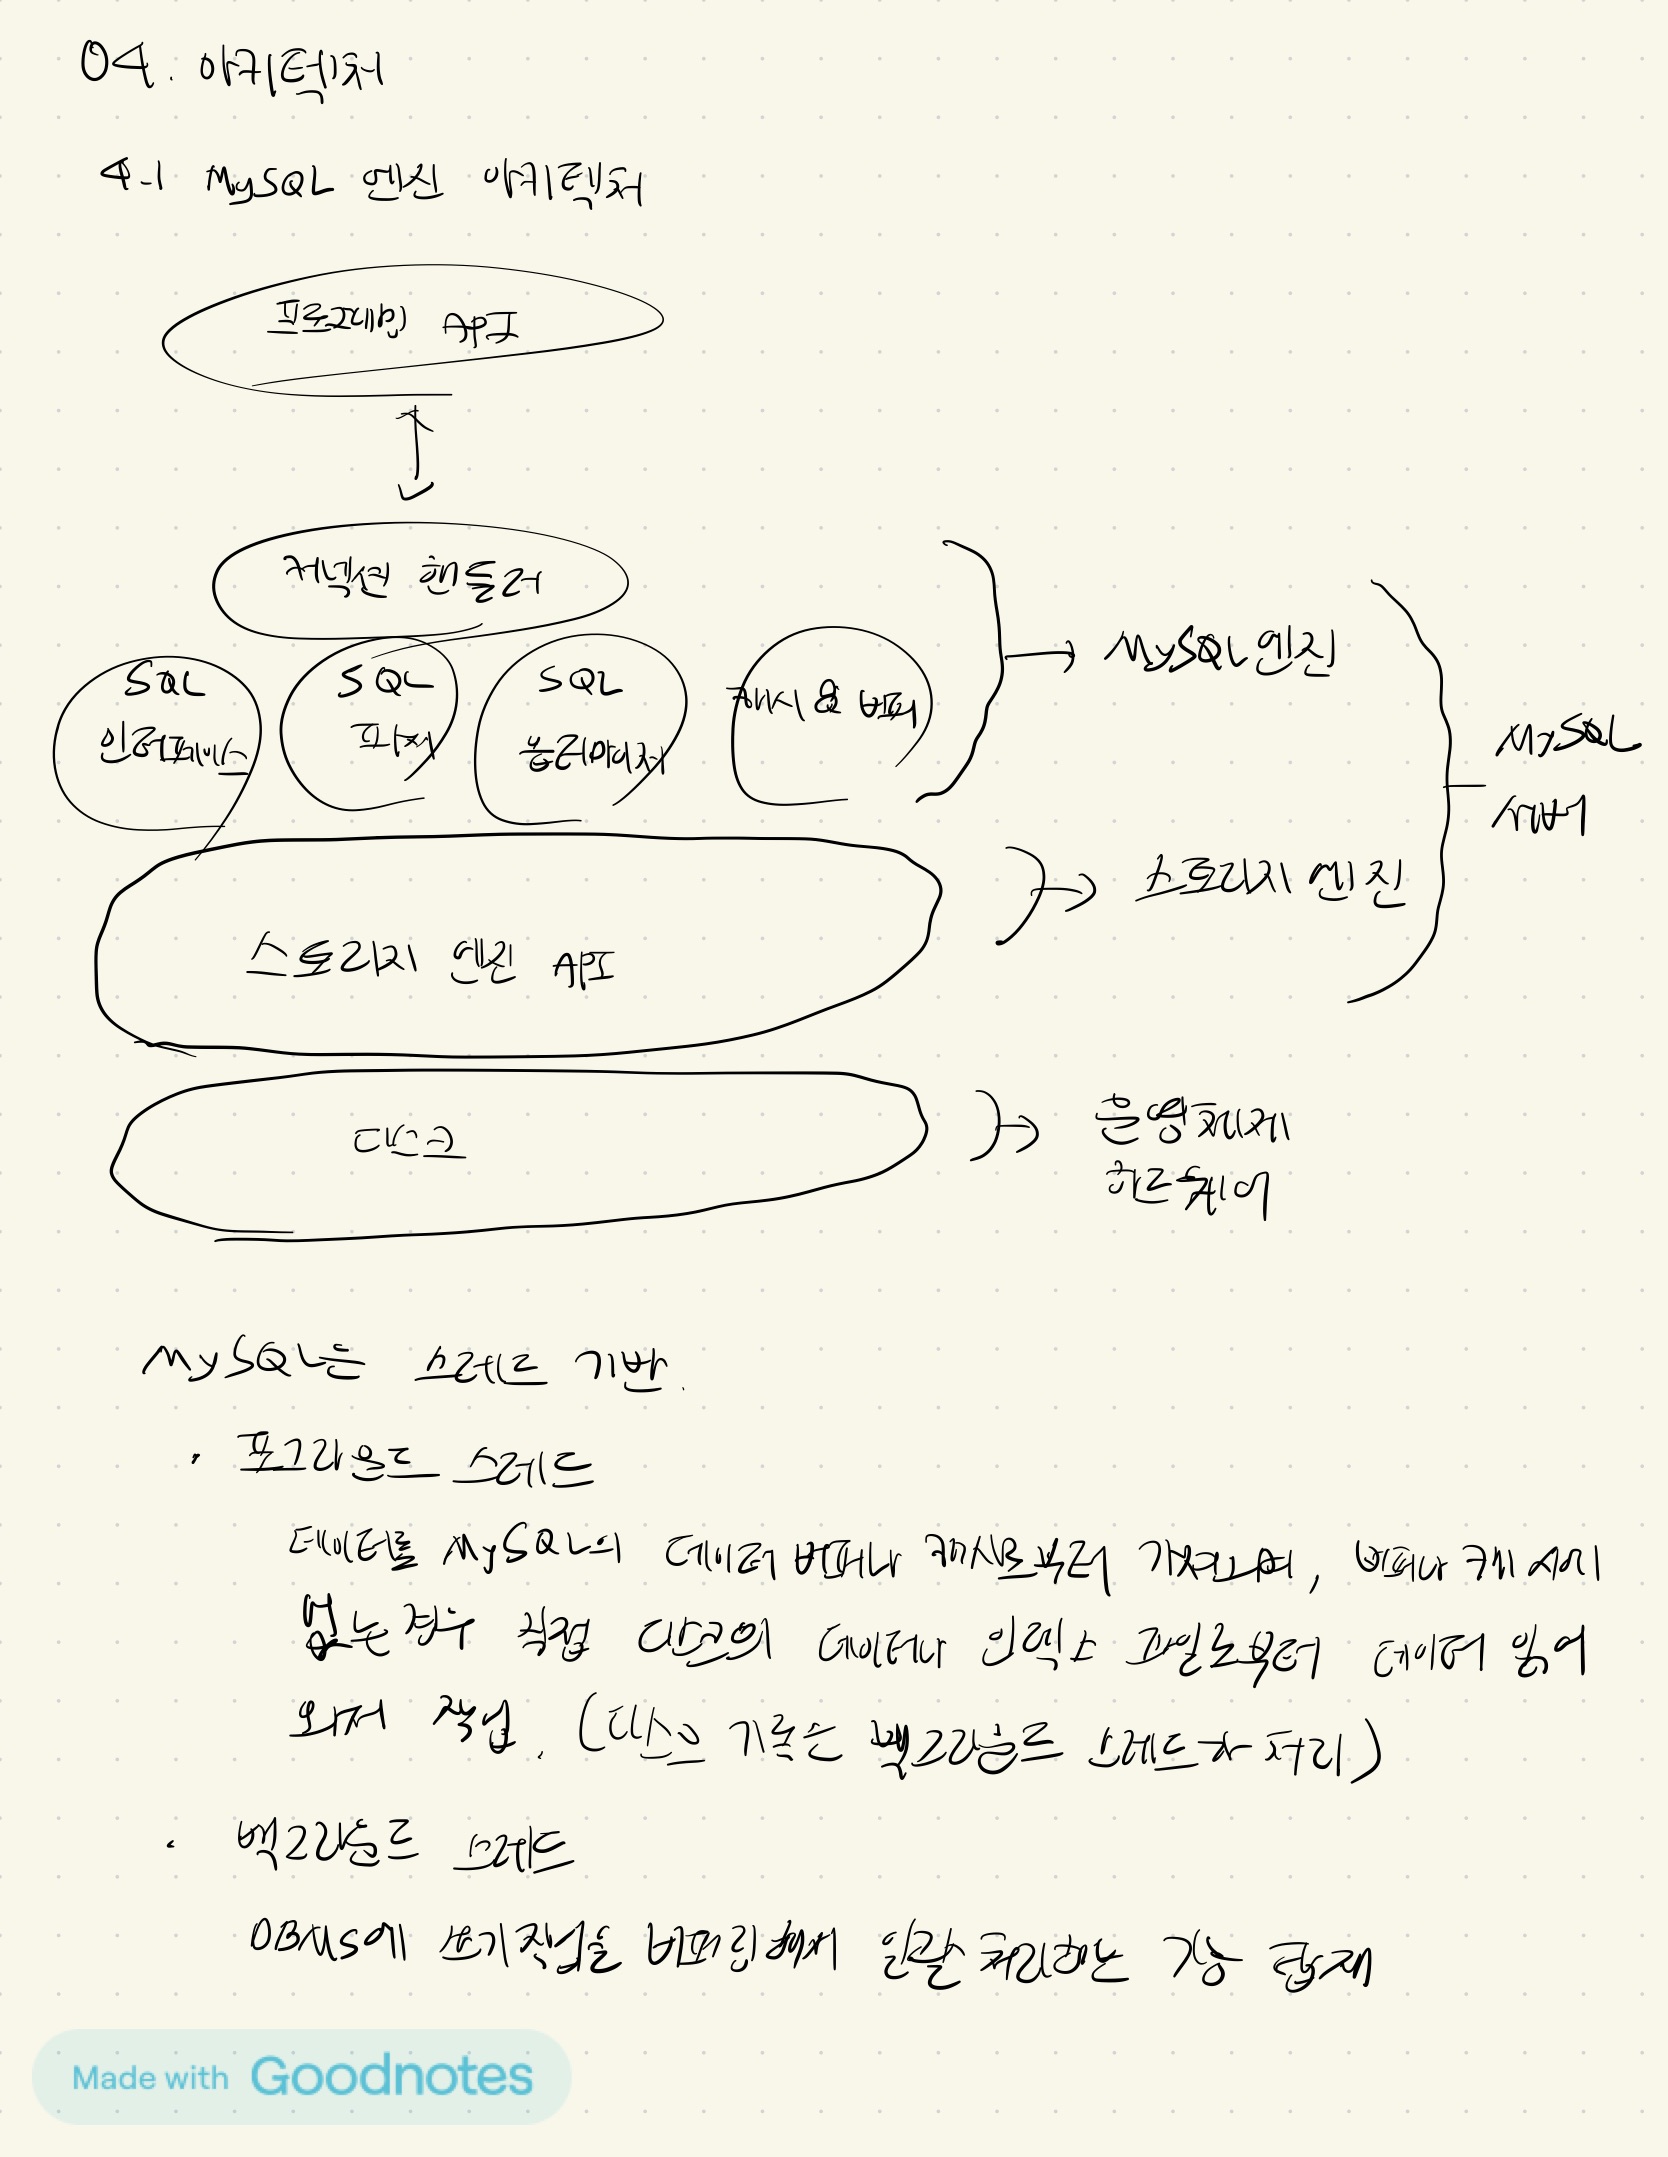 04. 아키텍처
4-1 MySQL 엔진 아키텍처
프로그래밍 API
커넥션 핸들러
SQL
인터페이스
SQL
파서
SQL
옵티마이저
캐시 & 버퍼
MySQL 엔진
MySQL
서버
스토리지 엔진
스토리지 엔진 API
디스크
운영체제
하드웨어
MySQL는 스레드 기반.
· 포그라운드 스레드
데이터를 MySQL의 데이터 버퍼나 캐시로부터 가져오며, 버퍼나 캐시에
없는 경우 직접 디스크의 데이터나 인덱스 파일로부터 데이터 읽어
와서 작업. (디스크 기록은 백그라운드 스레드가 처리)
· 백그라운드 스레드
DBMS에 쓰기작업을 버퍼링해서 일괄 처리하는 기능 탑재
Made with Goodnotes